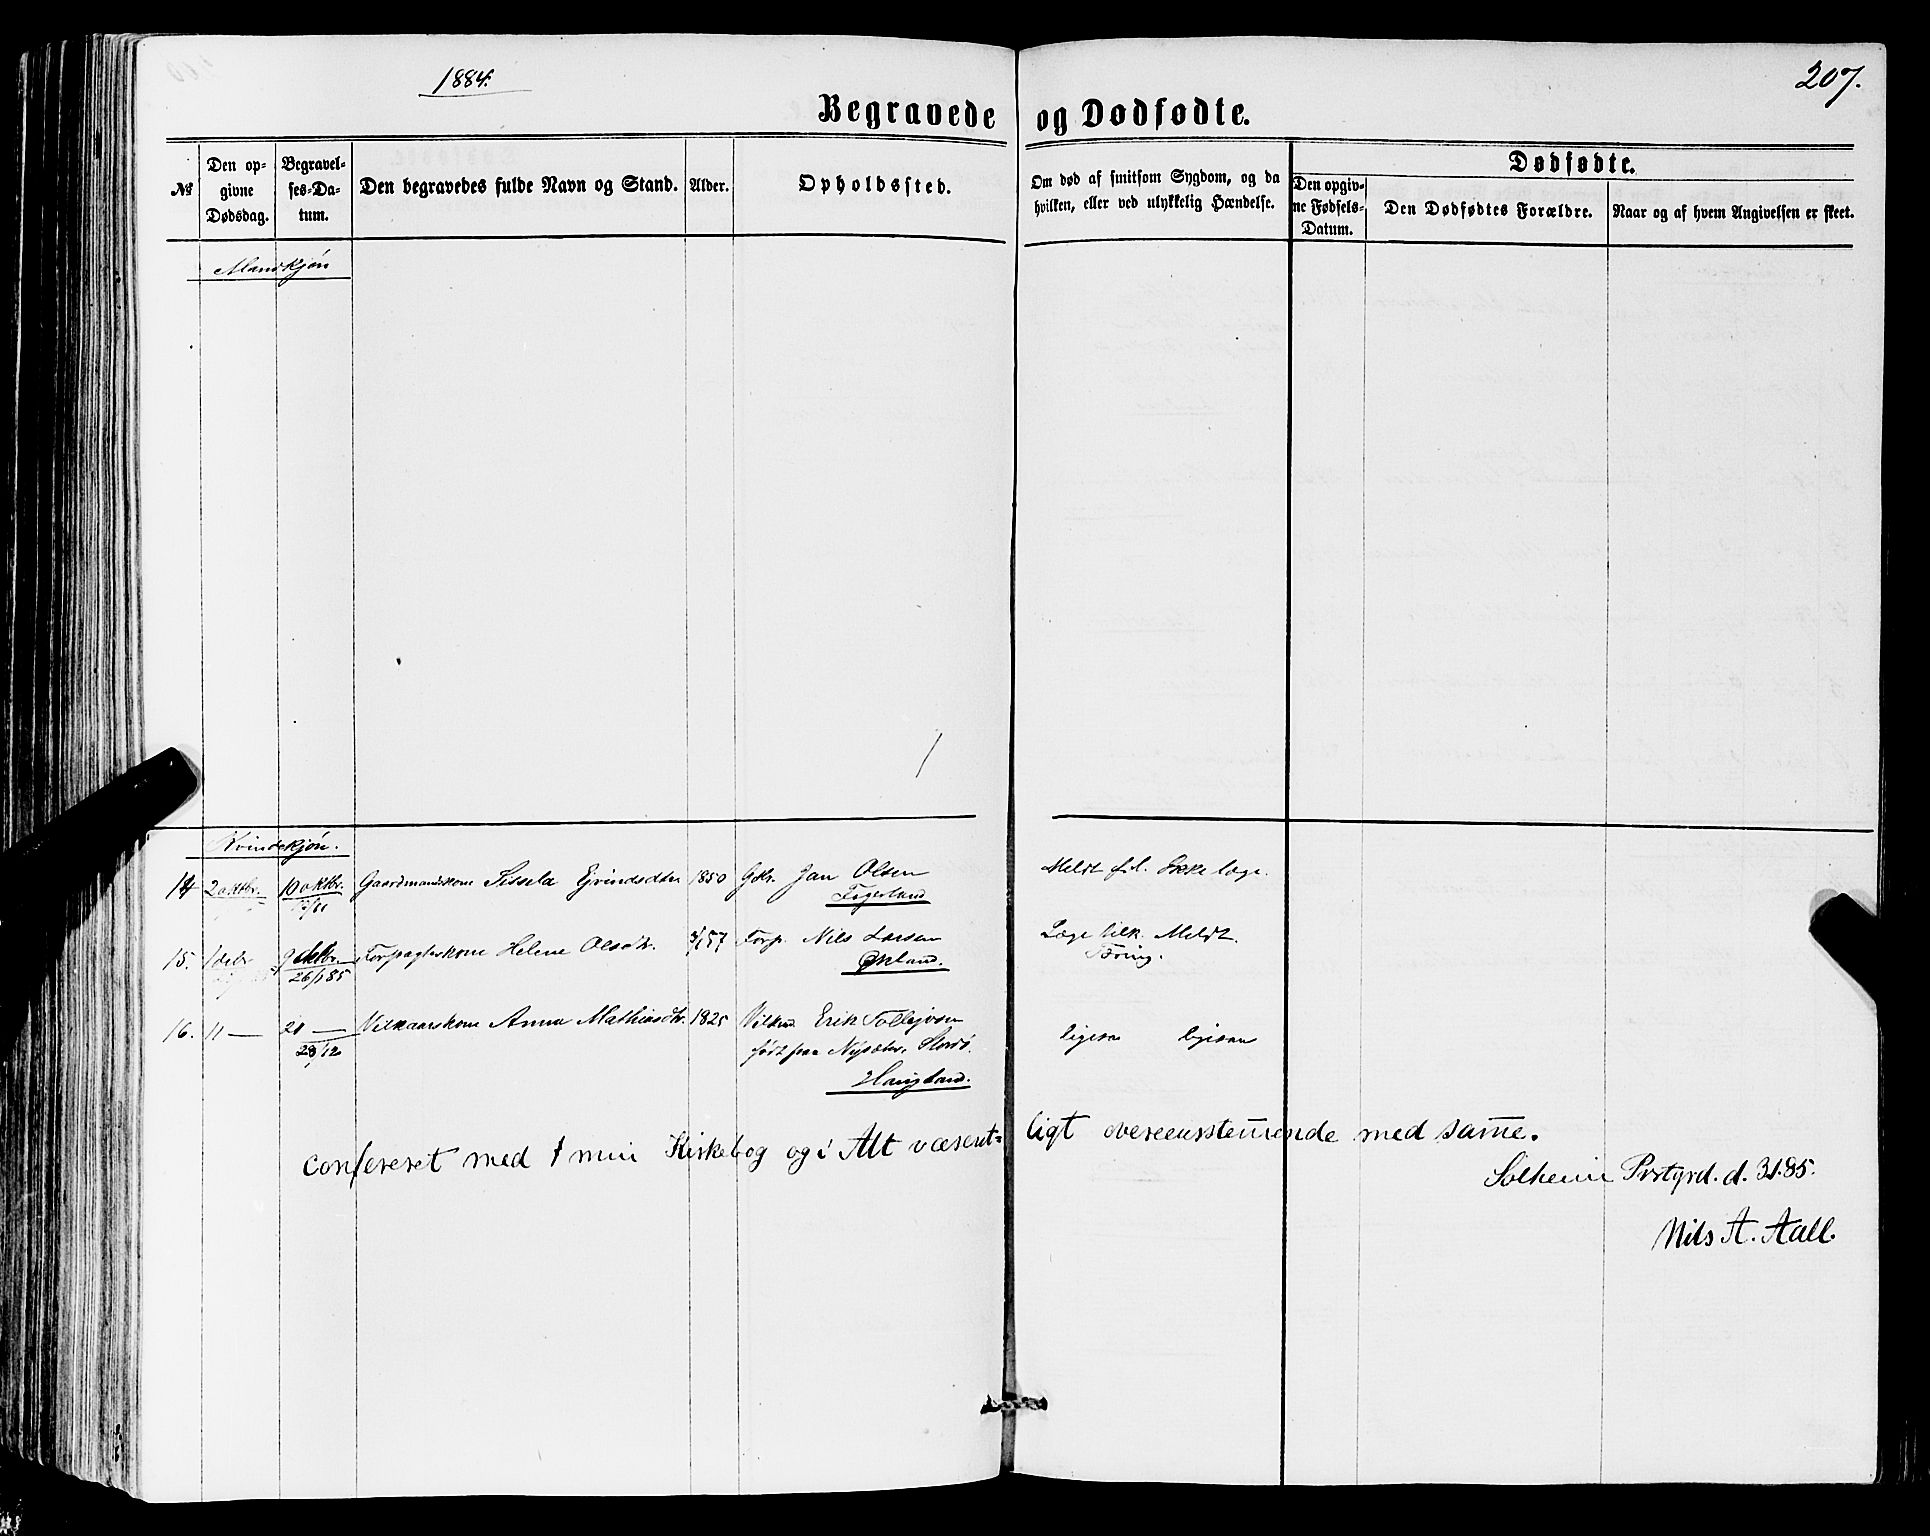 1884.
207.
Begravede og Dødfødte.
№
Den op-
givne
Dødsdag.
Begravel-
ses-Da-
tum.
Den begravedes fulde Navn og Stand.
Alder.
Opholdssted.
Om død af smitsom Sygdom, og da
hvilken, eller ved ulykkelig Hændelse.
Dødfødte.
Den opgiv-
ne Fødsels-
Datum.
Den Dødfødtes Forældre.
Naar og af hvem Angivelsen er skeet.
Mandkjøn
Kvindekjøn.
14 2 oktbr. 10 oktbr. Gaardmandskone Sissela Ejvindsdtr 1850 Gdr. Jan Olsen Meldt. Ikke læge.
Fagerland
15. 1 debr 9 Forpagterkone Helene Olsdtr. 57 Forp. Nils Larsen Læge tilk. Meldt.
26/1 85 Økland. Tæring.
16. 11 — 21 — Vilkaarskone Anna Mathiasdtr. 1825 Vilkmd. Erik Tollejvsen ligesaa ligesaa
28/12 født paa Nysæter, Stordø.
Haugland.
confereret med min Kirkebog og i Alt væsent- ligt overeensstemmende med samme.
Solheim Prstgrd. d. 3/1. 85.
Nils A. Aall.